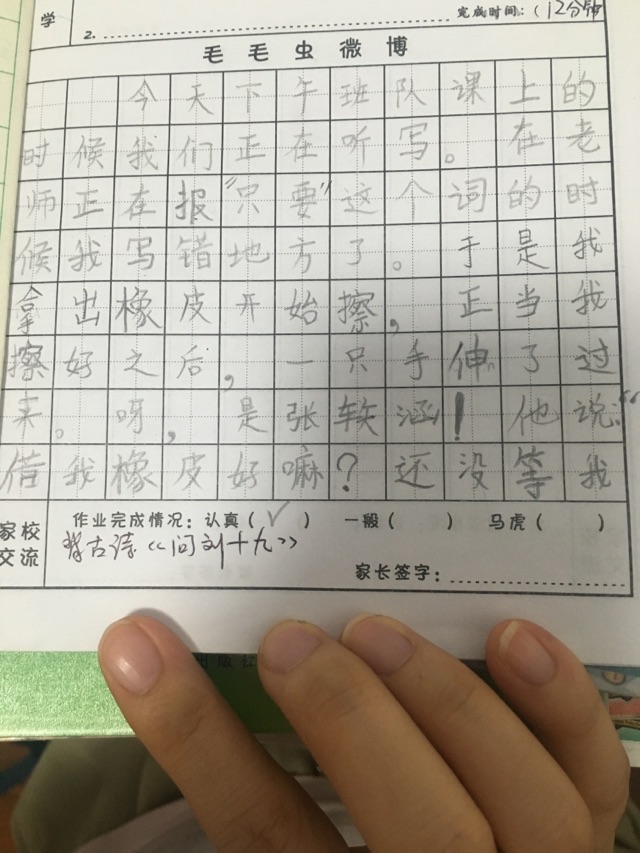 学
2.
完成时间：（12分钟
毛毛虫微博
今天下午班队课上的
时候我们正在听写。在老
师正在报“只要”这个词的时
候我写错地方了。于是我
拿出橡皮开始擦，正当我
擦好之后，一只手伸了过
来。呀，是张轶涵！他说：“
借我橡皮好嘛？还没等我
家校交流
作业完成情况：认真（✓） 一般（ ） 马虎（ ）
背古诗《问刘十九》
家长签字：
出版社